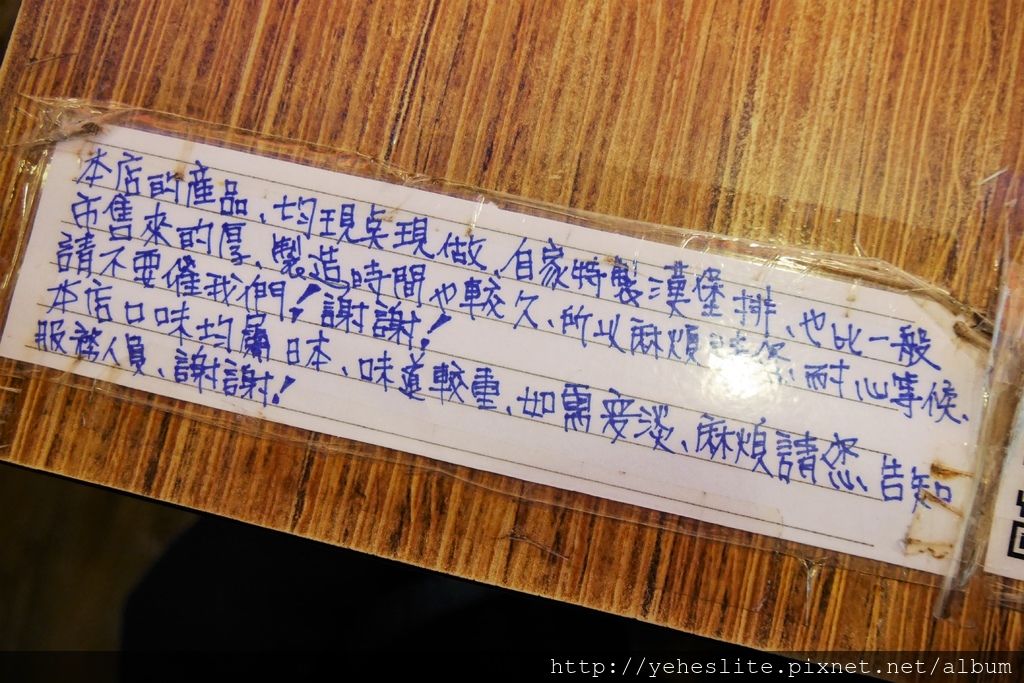 本店的產品、均現桌現做、自家特製漢堡排、也比一般
市售來的厚、製造時間也較久、所以麻煩請您耐心等候、
請不要催我們！謝謝！
本店口味均屬日本、味道較重、如需要淡、麻煩請您告知
服務人員、謝謝！
http://yeheslite.pixnet.net/album